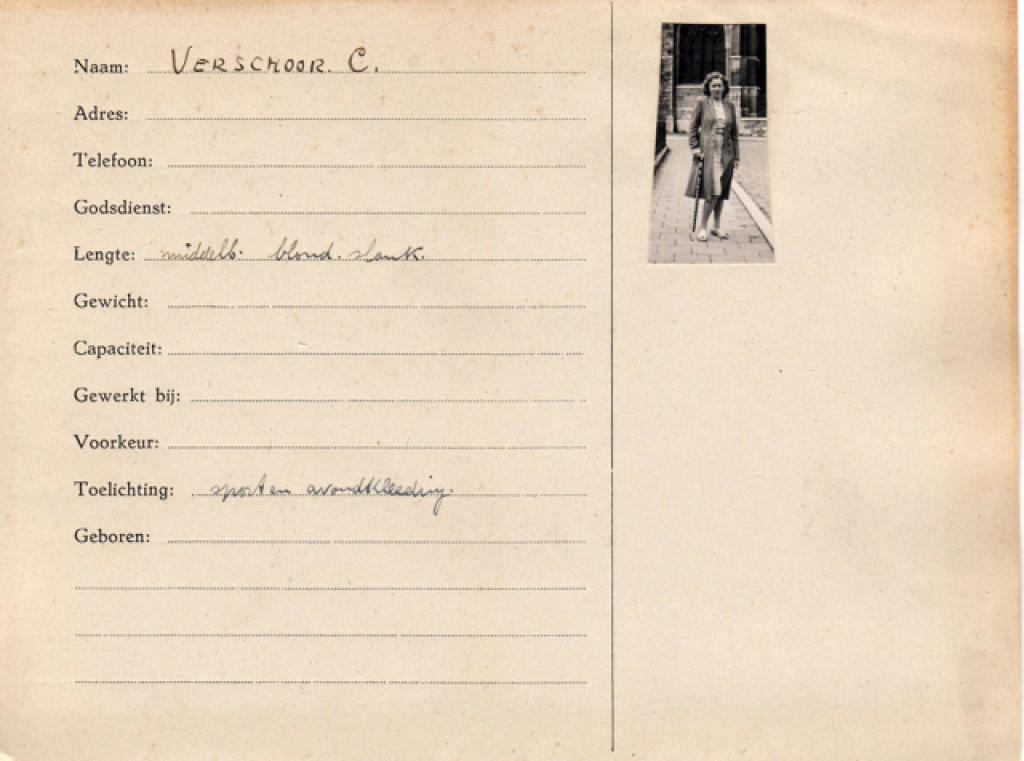 Naam: VERSCHOOR. C.
Adres:
Telefoon:
Godsdienst:
Lengte: middelb. blond. slank.
Gewicht:
Capaciteit:
Gewerkt bij:
Voorkeur:
Toelichting: sport en avondkleeding.
Geboren: